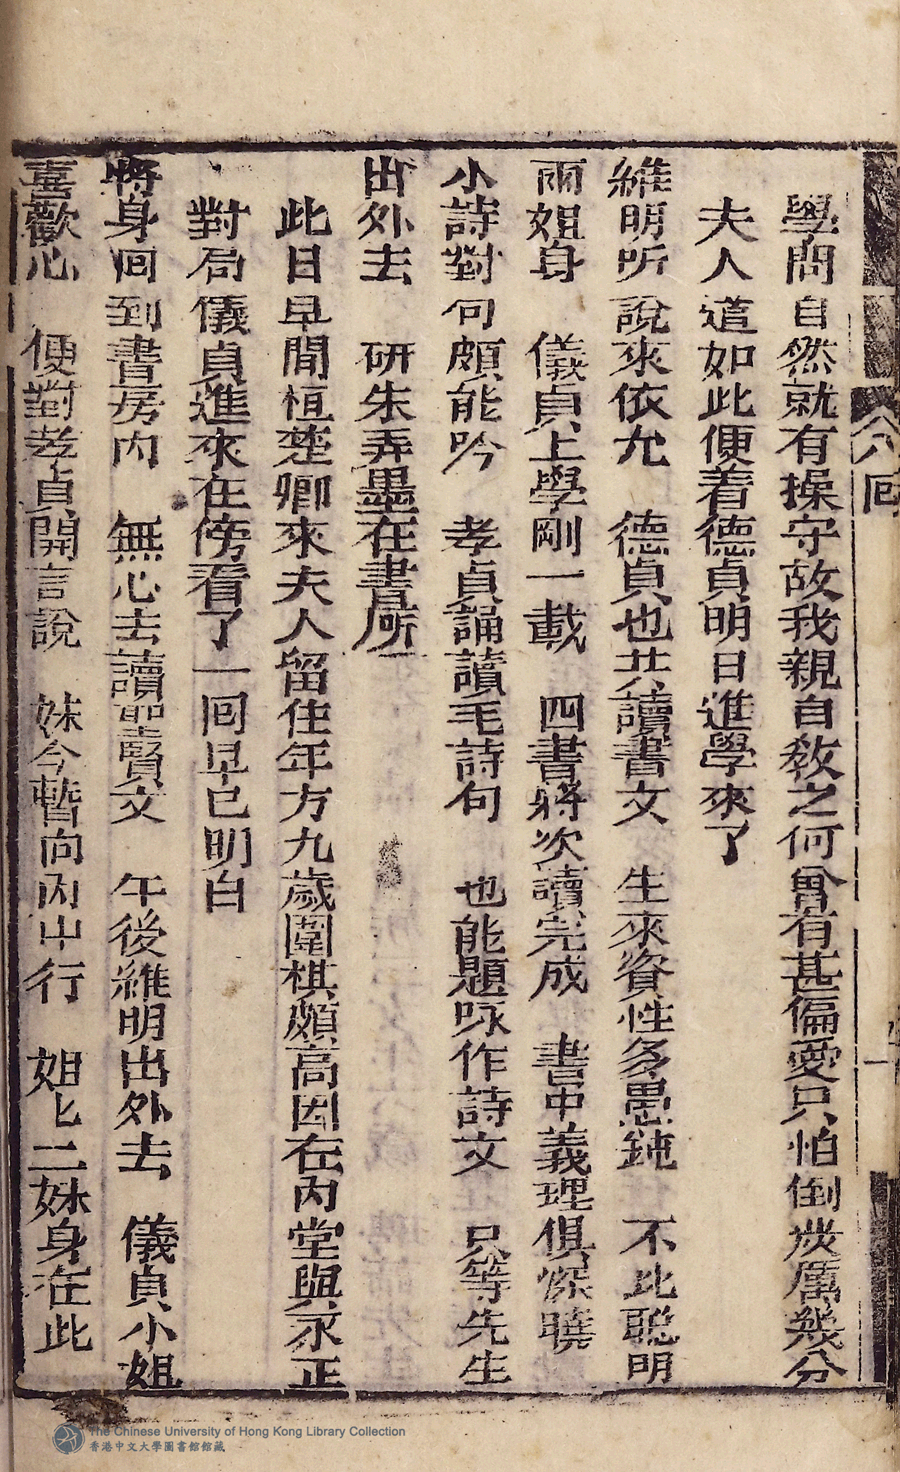 學問自然就有操守故我親自教之何曾有甚偏愛只怕倒炭厲幾分
夫人道如此便着德貞明日進學來了
維明所說來依允　德貞也共讀書文　生來資性多愚鈍　不比聰明
兩姐身　儀貞上學剛一載　四書將次讀完成　書中義理俱深曉
小詩對句頗能吟　孝貞誦讀毛詩句　也能題咏作詩文　只等先生
出外去　研朱弄墨在書所
此日早間桓楚卿來夫人留住年方九歲圍棋頗高因在內堂與永正
對局儀貞進來在傍看了一回早已明白
將身回到書房內　無心去讀聖賢文　午後維明出外去　儀貞小姐
喜歡心　便對孝貞開言說　妹今暫向內中行　姐匕二妹身在此
八回
The Chinese University of Hong Kong Library Collection
香港中文大學圖書館館藏